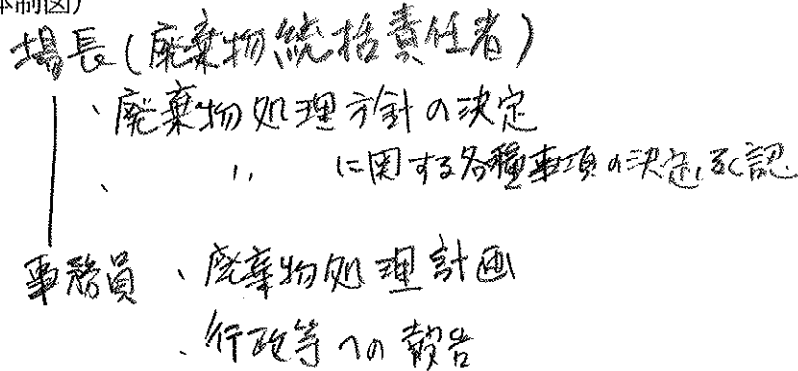 体制図)
場長(廃棄物統括責任者)
、廃棄物処理方針の決定
、 〃 に関する各種事項の決定、承認
事務員 、廃棄物処理計画
、行政等への報告